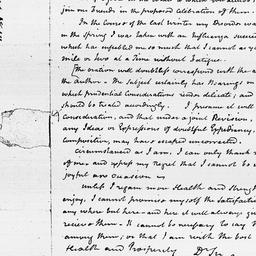 join our Friends in the proposed celebration of them.
In the Course of the last winter my
in the Spring I was taken with an Influenza
which has enfeebled me so much that I cannot as ye
mile or two at a Time without Fatigue.
The oration will doubtless correspond with the
the author. The Subject certainly has Bearings on
which prudential Considerations render delicate; and
should be treated accordingly. I presume it will
Consideration, and that under a joint Revision,
any Ideas or Expressions of doubtful Expediency,
Composition, may have escaped unobserved.
Circumstanced as I am, I can only thank
of me, and express my Regret that I cannot be a
joyful an occasion
Until I regain more Health and Strength
enjoy, I cannot promise myself the Satisfaction
any where but here and here it will always give
receive them. It cannot be necessary to say
among them; or that I am with the best
Health and Prosperity